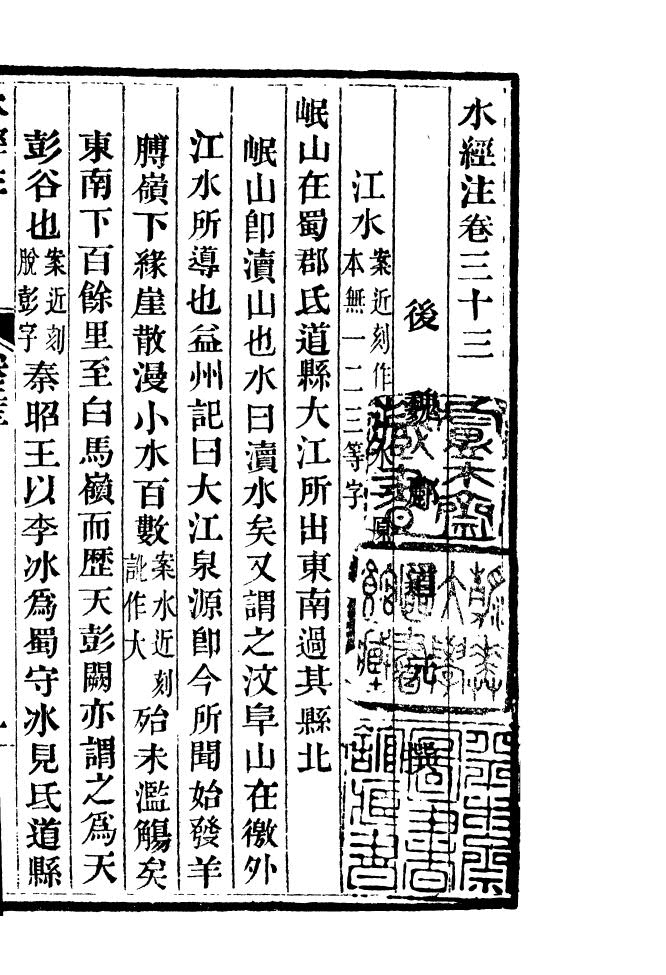 水經注卷三十三
後魏酈道元撰
江水案近刻作江水一原本無一二三等字
岷山在蜀郡氐道縣大江所出東南過其縣北
岷山卽瀆山也水曰瀆水矣又謂之汶阜山在徼外
江水所導也益州記曰大江泉源卽今所聞始發羊
膊嶺下緣崖散漫小水百數案水近刻訛作大殆未濫觴矣
東南下百餘里至白馬嶺而歴天彭闕亦謂之爲天
彭谷也案近刻脫彭字秦昭王以李冰爲蜀守冰見氐道縣